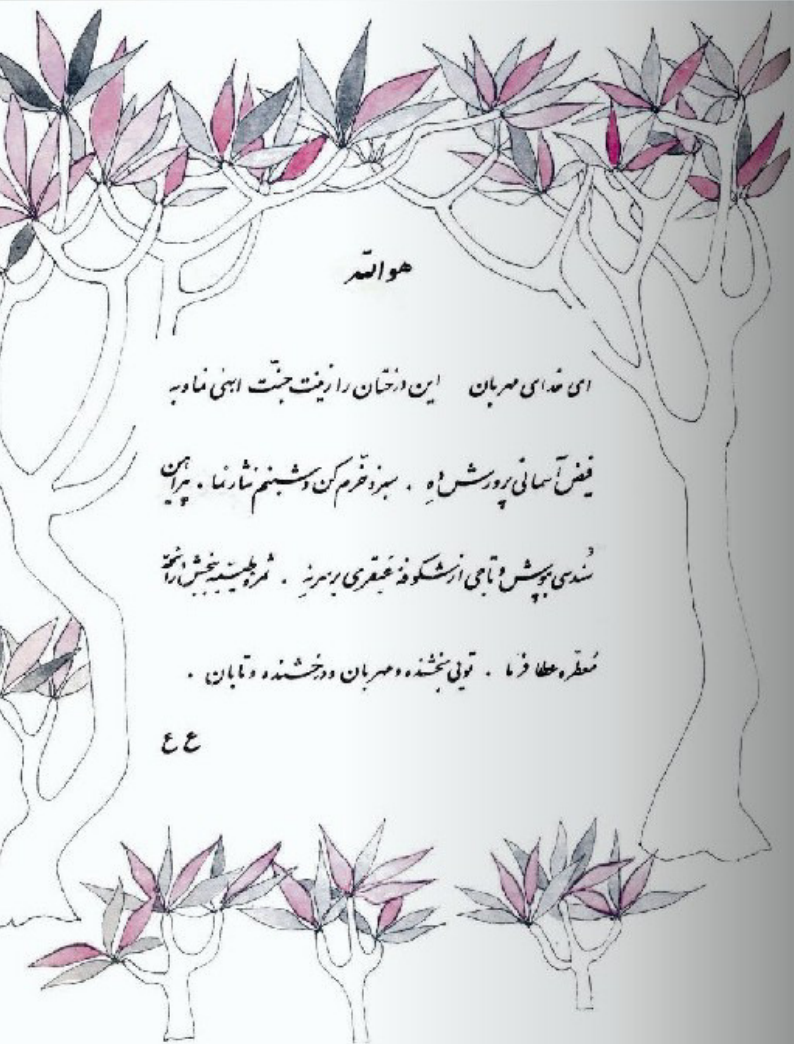 هواللّه
ای خدای مهربان این درختان را زینت جنّت ابهی نما و به
فیض آسمانی پرورش ده . سبز و خرّم کن و شبنم نثار نما . پیراهن
سُندسی بپوش و تاجی از شکوفهٔ عبقری بر سر نِه . ثمر و طیّبه ببخش رائحهٔ
مُعطّره عطا فرما . تویی بخشنده و مهربان و درخشنده و تابان .
ع ع